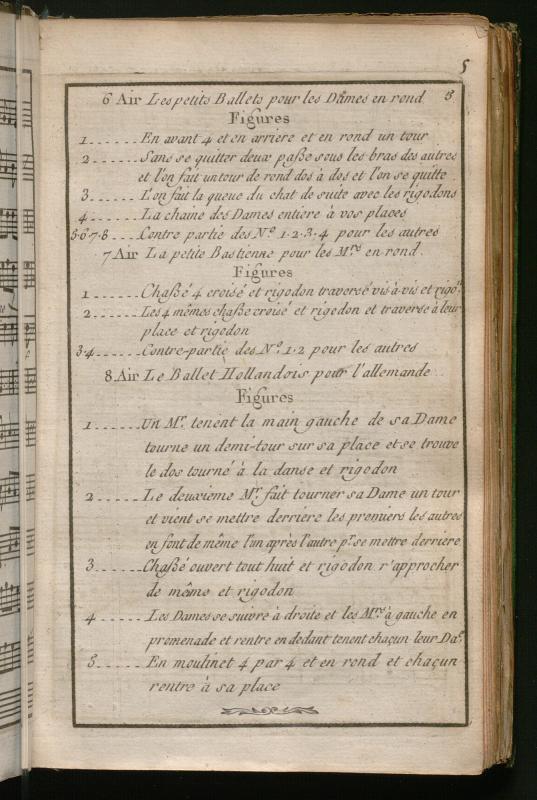 5
6 Air Les petits Ballets pour les Dames en rond 5
Figures
1...... En avant 4 et en arriere et en rond un tour
2...... Sans se quitter deux paße sous les bras des autres
et l'on fait un tour de rond dos à dos et l'on se quitte
3...... L'on fait la queue du chat de suite avec les rigodons
4...... La chaine des Dames entiere à vos places
5·6·7·8.... Contre partie des N.º 1·2·3·4 pour les autres
7 Air La petite Bastienne pour les M.rs en rond.
Figures
1...... Chaßé 4 croisé et rigodon traversé vis-à-vis et rigo.n
2...... Les 4 mêmes chaße croisé et rigodon et traverse à leur
place et rigodon
3·4..... Contre-partie des N.º 1·2 pour les autres
8 Air Le Ballet Hollandois pour l'allemande
Figures
1...... Un M.r tenent la main gauche de sa Dame
tourne un demi-tour sur sa place et se trouve
le dos tourné à la danse et rigodon
2...... Le deuxième M.r fait tourner sa Dame un tour
et vient se mettre derriere les premiers les autres
en font de même l'un après l'autre p.r se mettre derriere
3...... Chaßé ouvert tout huit et rigodon r'approcher
de même et rigodon
4...... Les Dames se suivre à droite et les M.rs à gauche en
promenade et rentre en dedant tenent chaçun leur Da.e
5...... En moulinet 4 par 4 et en rond et chaçun
rentre à sa place